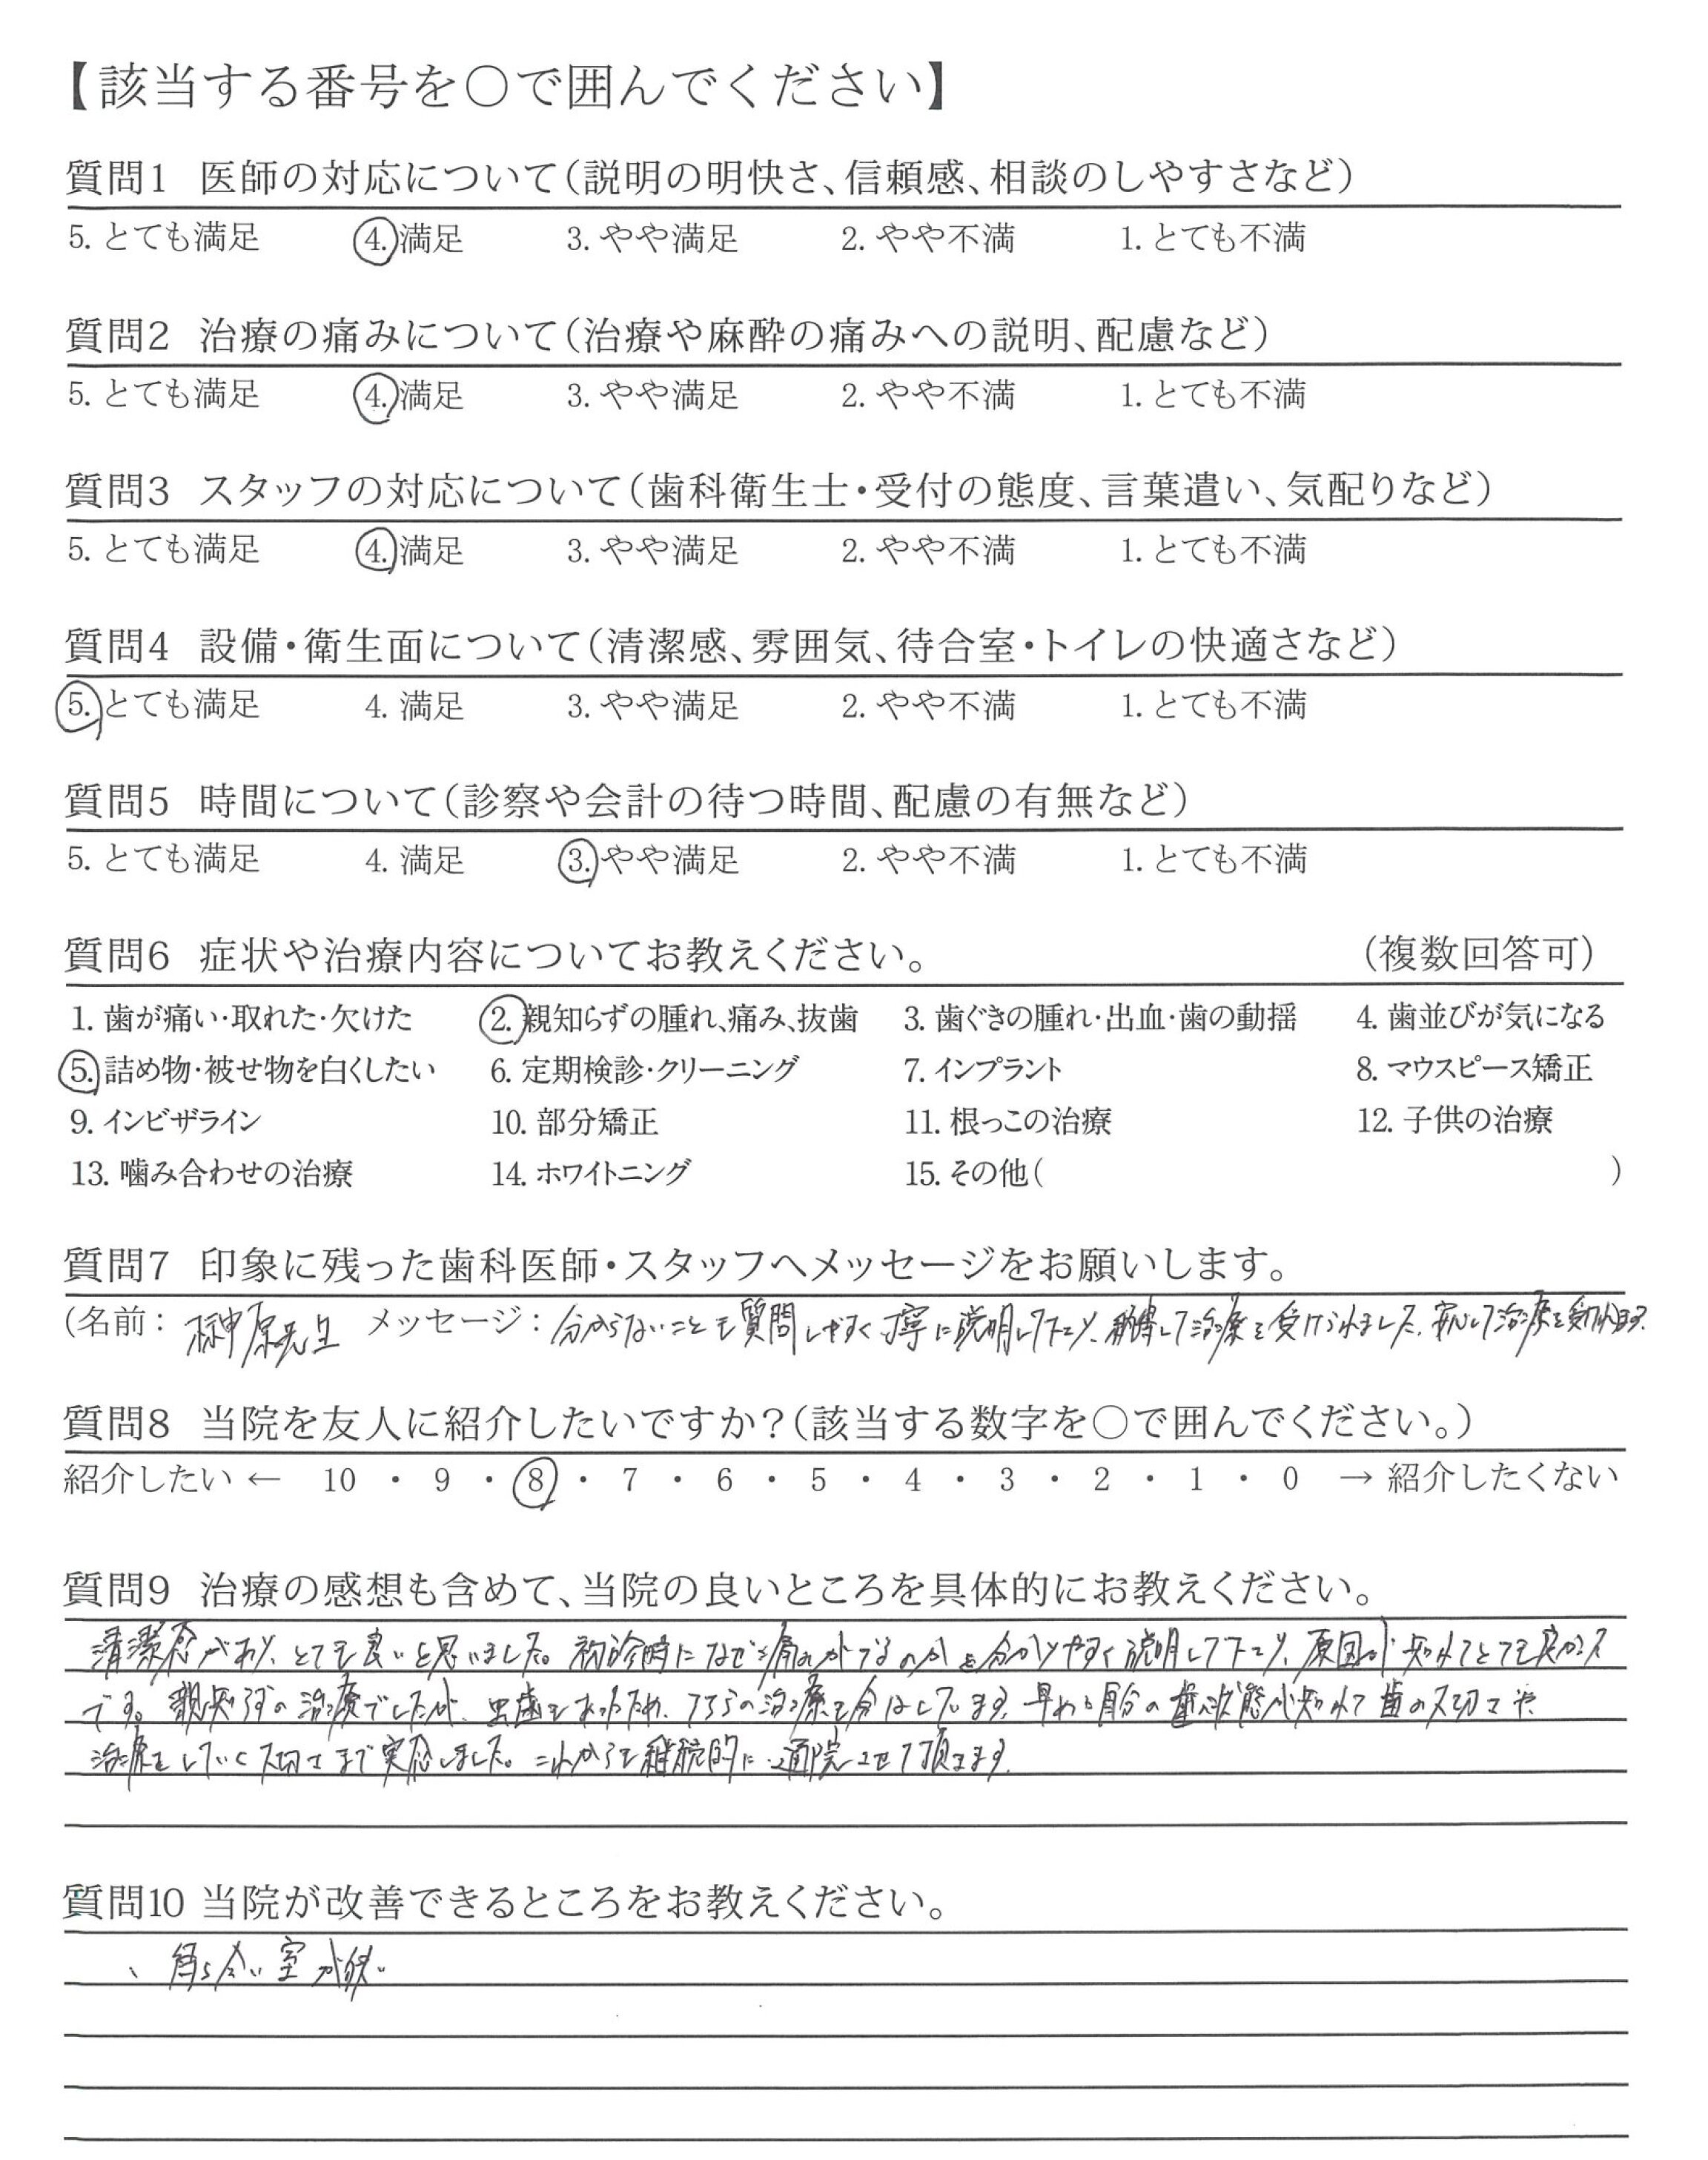 【該当する番号を○で囲んでください】
質問1 医師の対応について(説明の明快さ、信頼感、相談のしやすさなど)
5. とても満足 4. 満足 3. やや満足 2. やや不満 1. とても不満
質問2 治療の痛みについて(治療や麻酔の痛みへの説明、配慮など)
5. とても満足 4. 満足 3. やや満足 2. やや不満 1. とても不満
質問3 スタッフの対応について(歯科衛生士・受付の態度、言葉遣い、気配りなど)
5. とても満足 4. 満足 3. やや満足 2. やや不満 1. とても不満
質問4 設備・衛生面について(清潔感、雰囲気、待合室・トイレの快適さなど)
5. とても満足 4. 満足 3. やや満足 2. やや不満 1. とても不満
質問5 時間について(診察や会計の待つ時間、配慮の有無など)
5. とても満足 4. 満足 3. やや満足 2. やや不満 1. とても不満
質問6 症状や治療内容についてお教えください。 (複数回答可)
1. 歯が痛い・取れた・欠けた 2. 親知らずの腫れ、痛み、抜歯 3. 歯ぐきの腫れ・出血・歯の動揺 4. 歯並びが気になる
5. 詰め物・被せ物を白くしたい 6. 定期検診・クリーニング 7. インプラント 8. マウスピース矯正
9. インビザライン 10. 部分矯正 11. 根っこの治療 12. 子供の治療
13. 噛み合わせの治療 14. ホワイトニング 15. その他( )
質問7 印象に残った歯科医師・スタッフへメッセージをお願いします。
(名前: 榊原先生 メッセージ: 分からないことも質問しやすく丁寧に説明して下さり、納得して治療を受けられました。安心して治療を受けれます。
質問8 当院を友人に紹介したいですか?(該当する数字を○で囲んでください。)
紹介したい ← 10 ・ 9 ・ 8 ・ 7 ・ 6 ・ 5 ・ 4 ・ 3 ・ 2 ・ 1 ・ 0 → 紹介したくない
質問9 治療の感想も含めて、当院の良いところを具体的にお教えください。
清潔感があり、とても良いと思いました。初診時になぜ痛みがでるのかを分かりやすく説明して下さり、原因が知れてとても
です。親知らずの治療でしたが、虫歯もあったため、そちらの治療も今はしています。早めに自分の歯の状態が知れて歯の大切さや
治療をしていく大切さまで実感しました。これからも継続的に通院させて頂きます。
質問10 当院が改善できるところをお教えください。
、待ち合い室が狭い